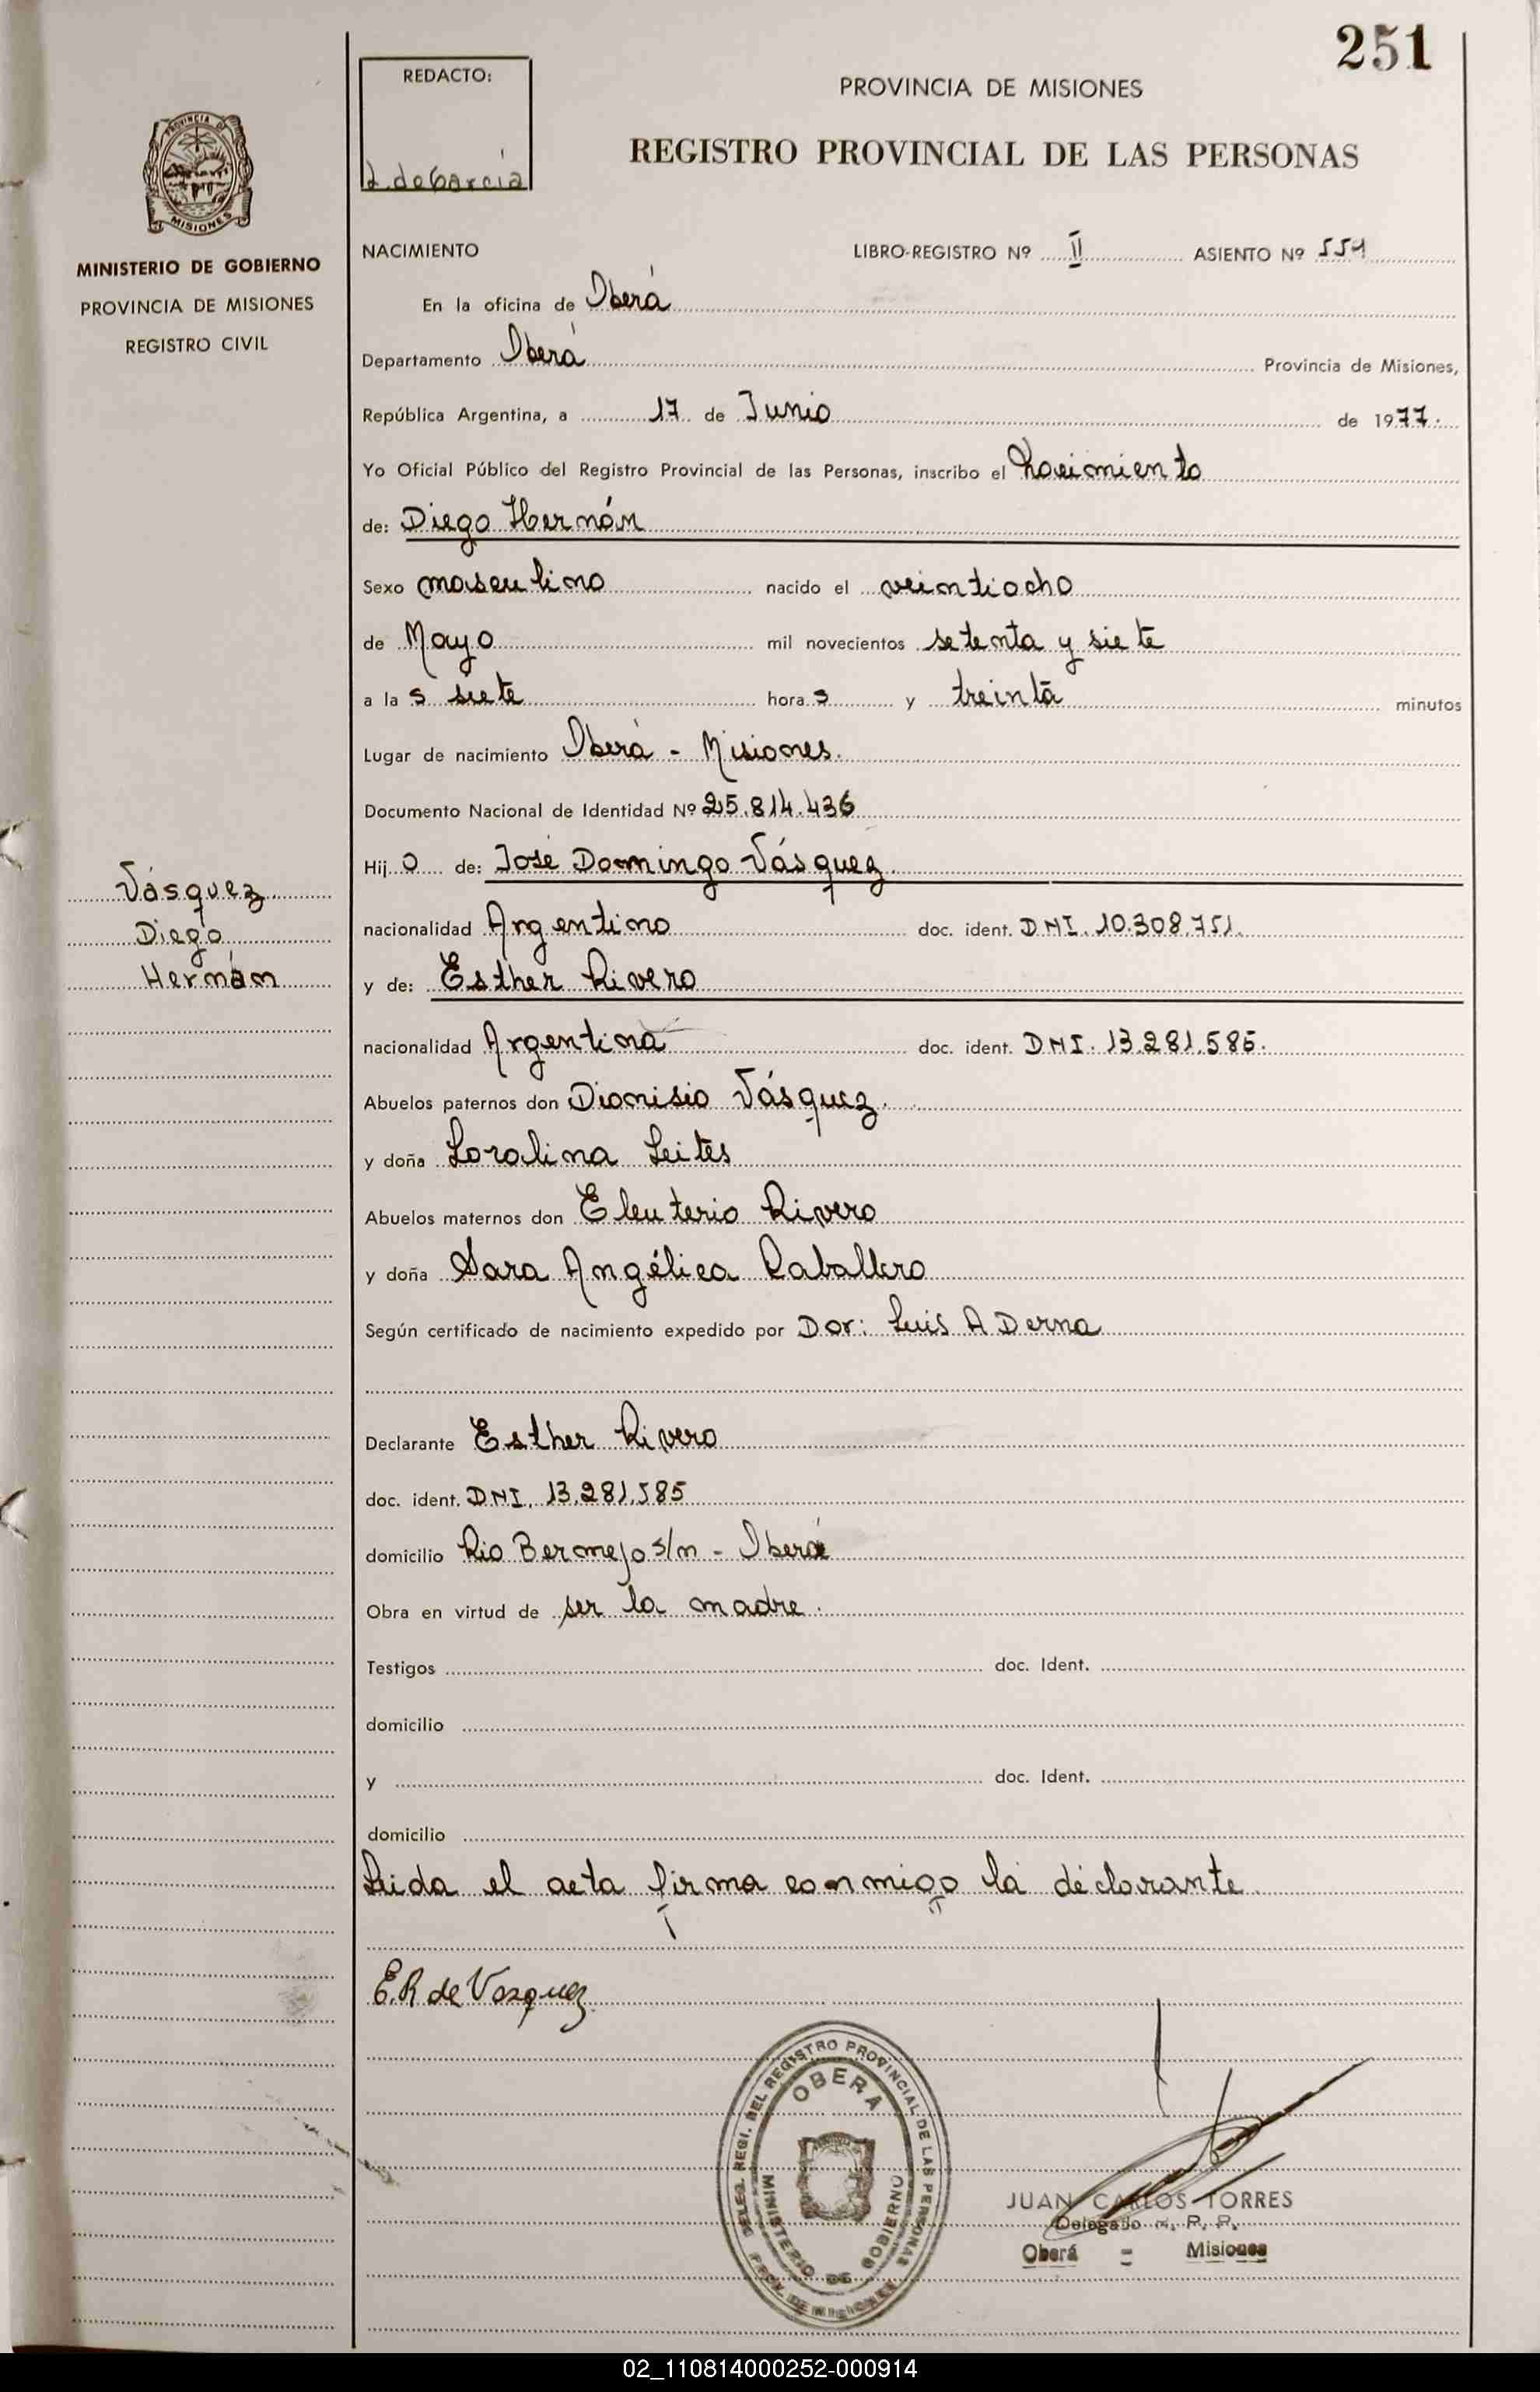 251
REDACTO:
L. de García
PROVINCIA DE MISIONES
REGISTRO PROVINCIAL DE LAS PERSONAS
PROVINCIA DE
MISIONES
MINISTERIO DE GOBIERNO
PROVINCIA DE MISIONES
REGISTRO CIVIL
NACIMIENTO LIBRO-REGISTRO Nº II ASIENTO Nº 551
En la oficina de Oberá
Departamento Oberá Provincia de Misiones,
República Argentina, a 17 de Junio de 1977.
Yo Oficial Público del Registro Provincial de las Personas, inscribo el Nacimiento
de: Diego Hernán
Sexo masculino nacido el veintiocho
de Mayo mil novecientos setenta y siete
a la s siete hora s y treinta minutos
Lugar de nacimiento Oberá - Misiones.
Documento Nacional de Identidad Nº 25.814.436
Hij o de: José Domingo Vásquez
Vásquez
Diego
Hernán
nacionalidad Argentino doc. ident. DNI. 10.308.751.
y de: Esther Rivero
nacionalidad Argentina doc. ident. DNI. 13.281.585.
Abuelos paternos don Dionisio Vásquez.
y doña Loralina Leites
Abuelos maternos don Eleuterio Rivero
y doña Sara Angélica Caballero
Según certificado de nacimiento expedido por Dor: Luis A Derna
Declarante Esther Rivero
doc. ident. DNI. 13.281.585
domicilio Rio Bermejo s/n - Oberá
Obra en virtud de ser la madre.
Testigos doc. Ident.
domicilio
y doc. Ident.
domicilio
Leida el acta firma conmigo la declarante
E.R de Vasquez
DELEG. REGI. DEL REGISTRO PROVINCIAL DE LAS PERSONAS
OBERA
MINISTERIO DE GOBIERNO
PROV. DE MISIONES
JUAN CARLOS TORRES
Delegado R. P. P.
Oberá - Misiones
02_110814000252-000914